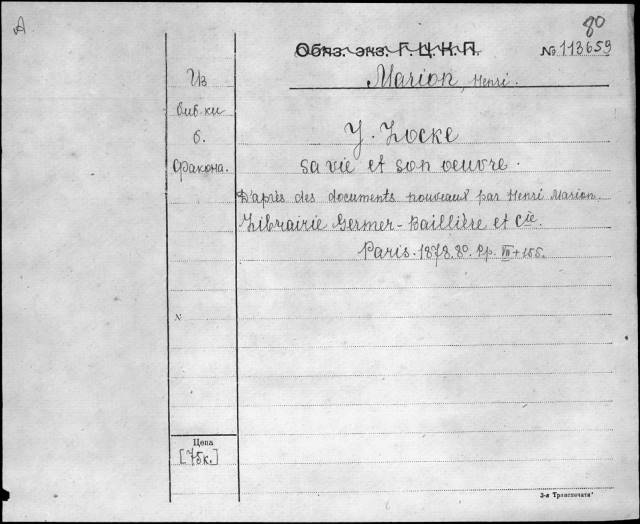 А
80
Обяз. экз. Г. Ц. К. П. № 113659
Marion, Henri.
Из
биб-ки
б.
Фракона.
J. Locke
sa vie et son oeuvre.
D'après des documents nouveaux par Henri Marion.
Librairie Germer-Baillière et Cie.
Paris. 1878. 8°. Pp. VII + 155.
N
Цена
[75к.]
3-я Транспечати